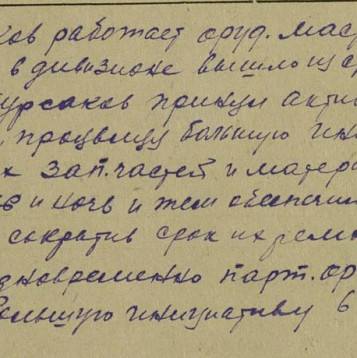 ков работает оруд. мас
в дивизионе вышло из с
урсаков принял акти
, процвищя большую ини
х зап.частей и матери
ю и ночь и тем обеспечил
сократив срок их ремо
дновременно парт. ор
большую инициативу в